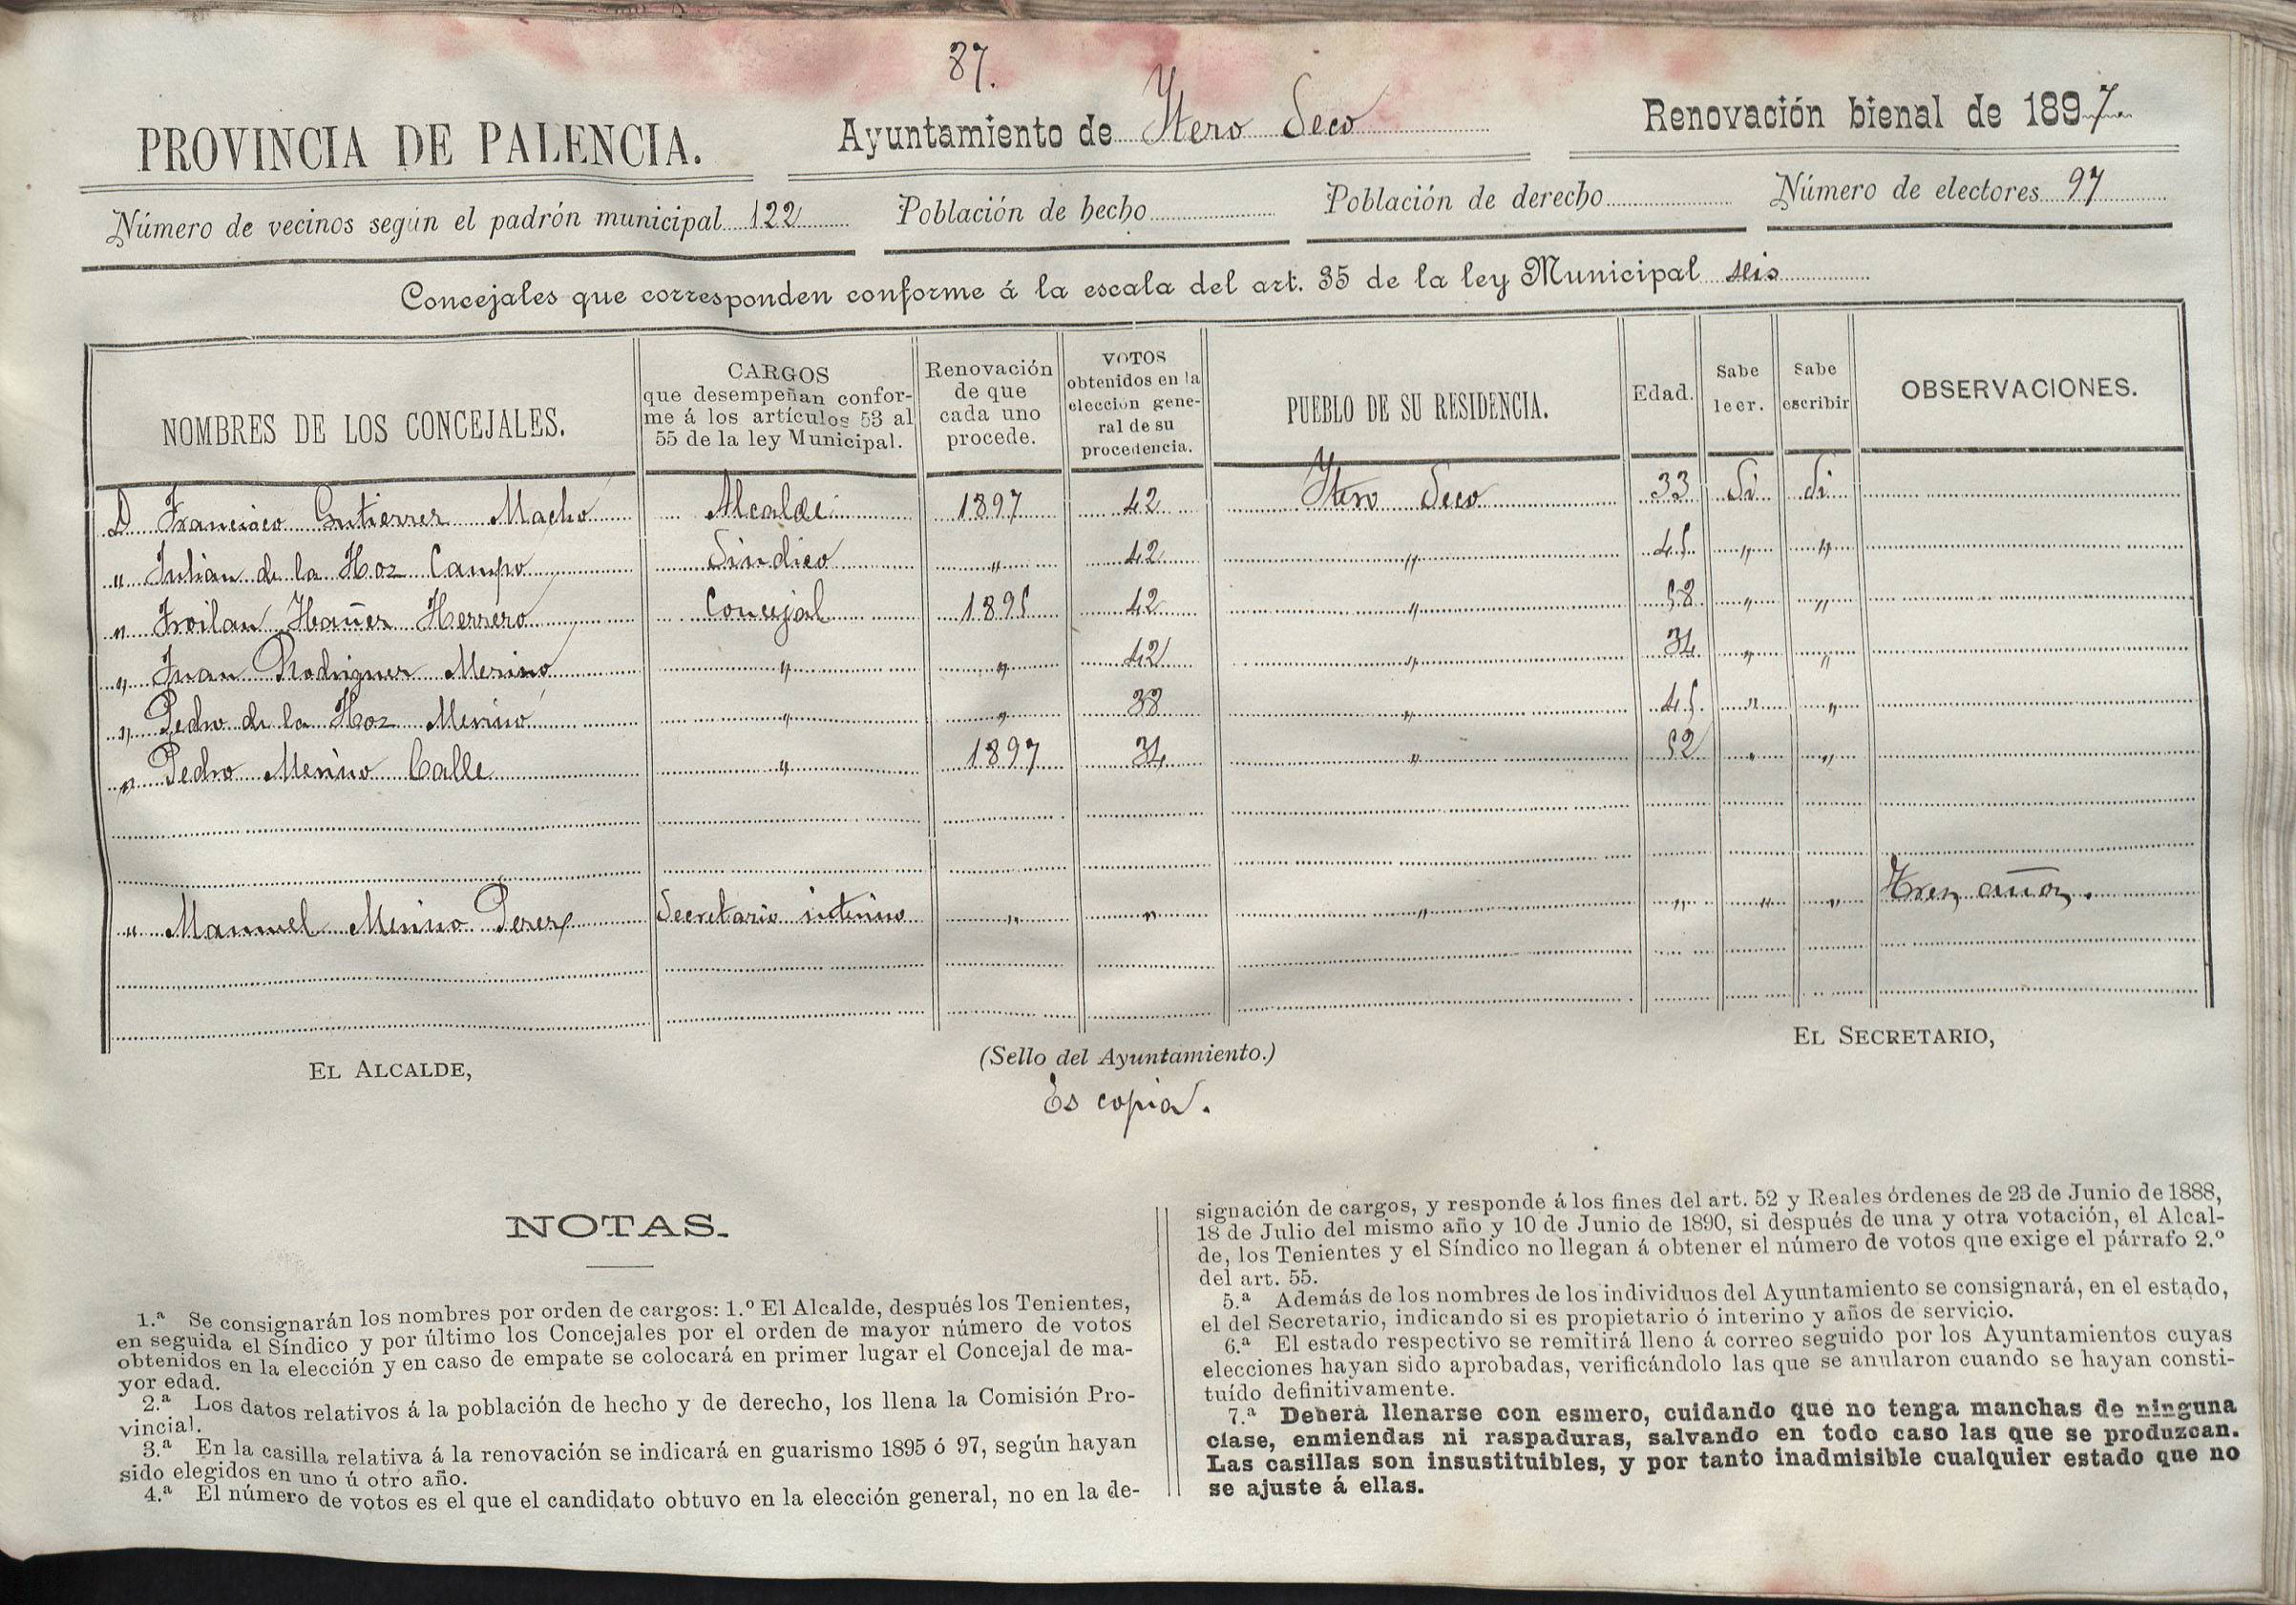 87.
PROVINCIA DE PALENCIA. Ayuntamiento de Ytero Seco Renovación bienal de 1897
Número de vecinos según el padrón municipal 122 Población de hecho Población de derecho Número de electores 97
Concejales que corresponden conforme á la escala del art. 35 de la ley Municipal seis
NOMBRES DE LOS CONCEJALES. CARGOS que desempeñan confor-me á los artículos 53 al 55 de la ley Municipal. Renovación de que cada uno procede. VOTOS obtenidos en la elección gene-ral de su procedencia. PUEBLO DE SU RESIDENCIA. Edad. Sabe leer. Sabe escribir OBSERVACIONES.
D Francisco Gutierrez Macho Alcalde 1897 42 Ytero Seco 33 Si Si
" Julián de la Hoz Campo Sindico " 42 " 45 " "
" Froilan Ybañez Herrero Concejal 1895 42 " 58 " "
" Juan Rodriguez Merino " " 42 " 34 " "
" Pedro de la Hoz Merino " " 38 " 45 " "
" Pedro Merino Calle " 1897 34 " 52 " "
" Manuel Merino Perez Secretario interino " " " " " " Tres años.
EL ALCALDE, (Sello del Ayuntamiento.) EL SECRETARIO,
Es copia.
NOTAS.
1.ª Se consignarán los nombres por orden de cargos: 1.º El Alcalde, después los Tenientes,
en seguida el Síndico y por último los Concejales por el orden de mayor número de votos
obtenidos en la elección y en caso de empate se colocará en primer lugar el Concejal de ma-
yor edad.
2.ª Los datos relativos á la población de hecho y de derecho, los llena la Comisión Pro-
vincial.
3.ª En la casilla relativa á la renovación se indicará en guarismo 1895 ó 97, según hayan
sido elegidos en uno ú otro año.
4.ª El número de votos es el que el candidato obtuvo en la elección general, no en la de-
signación de cargos, y responde á los fines del art. 52 y Reales órdenes de 23 de Junio de 1888,
18 de Julio del mismo año y 10 de Junio de 1890, si después de una y otra votación, el Alcal-
de, los Tenientes y el Síndico no llegan á obtener el número de votos que exige el párrafo 2.º
del art. 55.
5.ª Además de los nombres de los individuos del Ayuntamiento se consignará, en el estado,
el del Secretario, indicando si es propietario ó interino y años de servicio.
6.ª El estado respectivo se remitirá lleno á correo seguido por los Ayuntamientos cuyas
elecciones hayan sido aprobadas, verificándolo las que se anularon cuando se hayan consti-
tuído definitivamente.
7.ª Deberá llenarse con esmero, cuidando que no tenga manchas de ninguna
clase, enmiendas ni raspaduras, salvando en todo caso las que se produzcan.
Las casillas son insustituibles, y por tanto inadmisible cualquier estado que no
se ajuste á ellas.